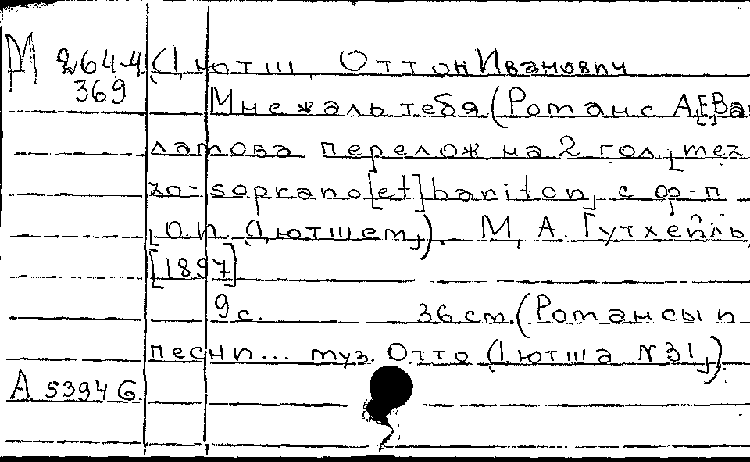 М 264-4 Дютш, Оттон Иванович
369
Мне жаль тебя (Романс А.[Е]Ва
ламова перелож на 2 гол, mez
zo-soprano[et]bariton, с ф-п
О.И. Дютшем,). М, А. Гутхейль,
[1897]
9с. 36 см. (Романсы и
песни... муз. Отто Дютша №31,)
А 5394 G